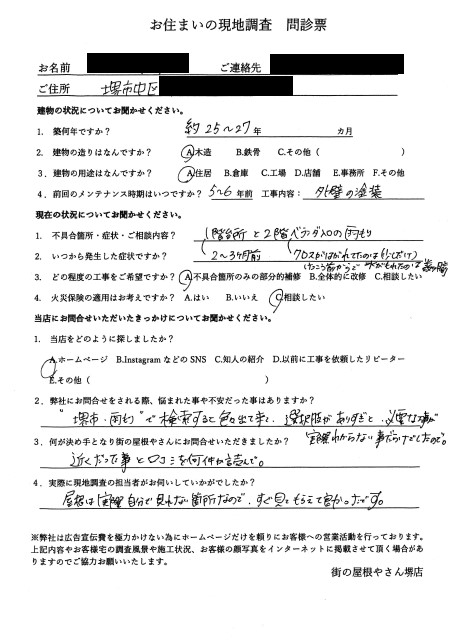 お住まいの現地調査 問診票
お名前 ご連絡先
ご住所 堺市中区
建物の状況についてお聞かせください。
1. 築何年ですか? 約25～27年 カ月
2. 建物の造りはなんですか? A.木造 B.鉄骨 C.その他 ( )
3. 建物の用途はなんですか? A.住居 B.倉庫 C.工場 D.店舗 E.事務所 F.その他
4. 前回のメンテナンス時期はいつですか? 5～6年前 工事内容: 外壁の塗装
現在の状況についてお聞かせください。
1. 不具合箇所・症状・ご相談内容? 1階台所と2階ベランダ入口の雨もり
2. いつから発生した症状ですか? 2～3ヶ月前 クロスがはがれてたのは
3. どの程度の工事をご希望ですか? A.不具合箇所のみの部分的補修 B.全体的に改修 C.相談したい
4. 火災保険の適用はお考えですか? A.はい B.いいえ C.相談したい
当店にお問合せいただいたきっかけについてお聞かせください。
1. 当店をどのように探しましたか?
A.ホームページ B.InstagramなどのSNS C.知人の紹介 D.以前に工事を依頼したリピーター
E.その他 ( )
2. 弊社にお問合せをされる際、悩まれた事や不安だった事はありますか?
"堺市・雨もり"で検索すると色々出て来て、選択肢がありすぎと、必要な事が
実際わからない事だらけでしたので。
3. 何が決め手となり街の屋根やさんにお問合せいただきましたか?
近くだった事と口コミを何件か読んで。
4. 実際に現地調査の担当者がお伺いしていかがでしたか?
屋根は実際自分で見れない箇所なので、すぐ見てもらえて良かったです。
※弊社は広告宣伝費を極力かけない為にホームページだけを頼りにお客様への営業活動を行っております。
上記内容やお客様宅の調査風景や施工状況、お客様の顔写真をインターネットに掲載させて頂く場合があ
りますのでご協力お願いいたします。
街の屋根やさん堺店